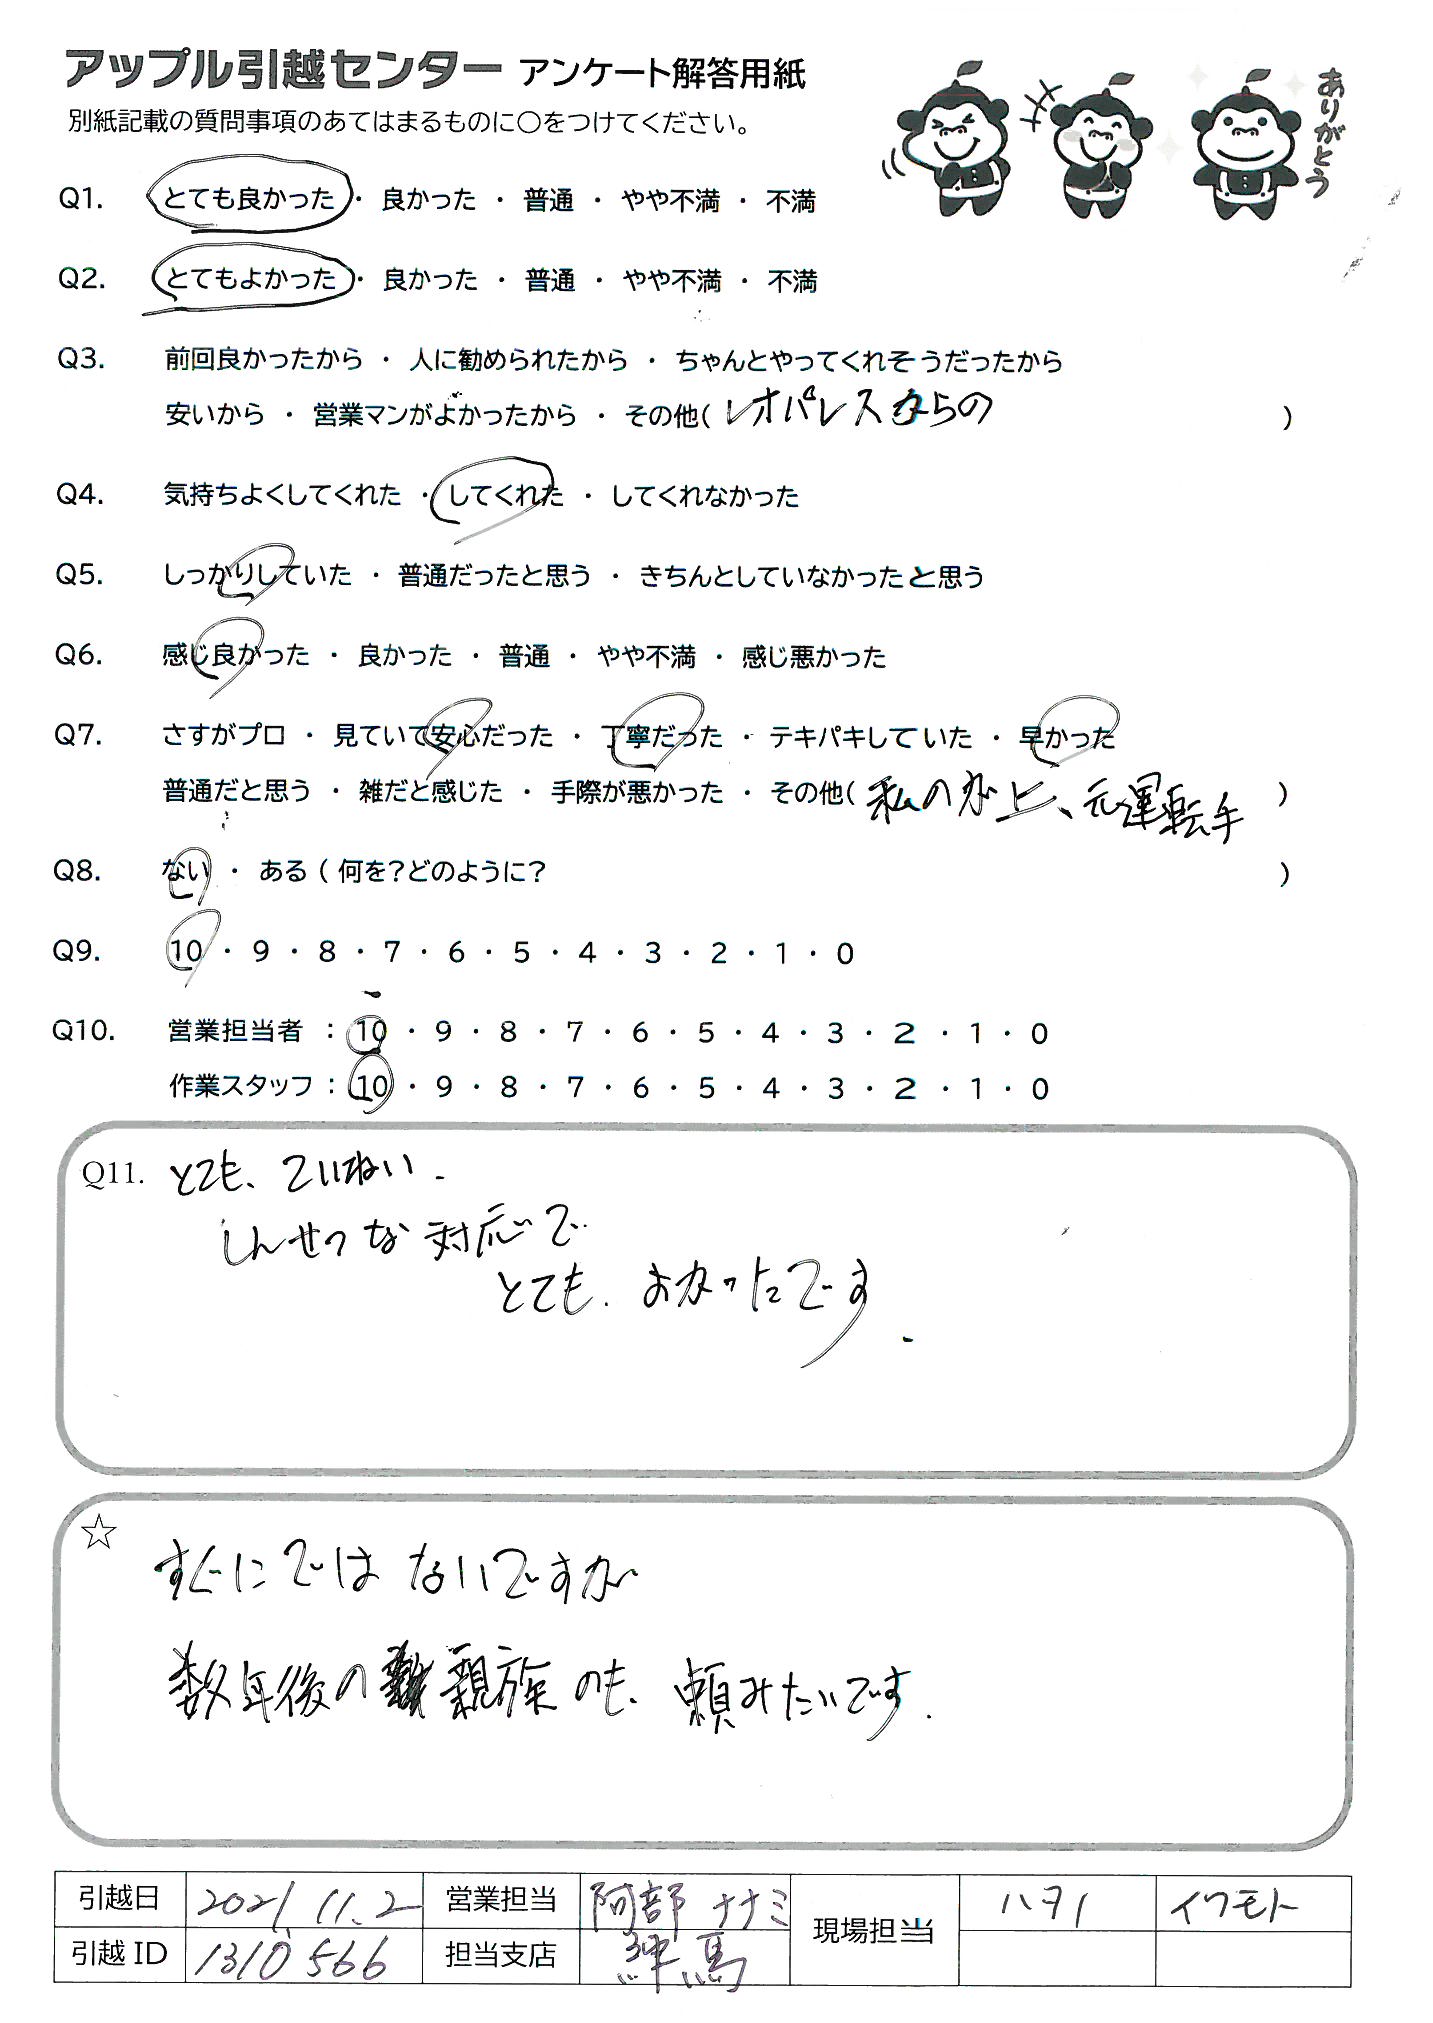 アップル引越センター アンケート解答用紙
別紙記載の質問事項のあてはまるものに○をつけてください。
ありがとう
Q1. とても良かった ・ 良かった ・ 普通 ・ やや不満 ・ 不満
Q2. とてもよかった ・ 良かった ・ 普通 ・ やや不満 ・ 不満
Q3. 前回良かったから ・ 人に勧められたから ・ ちゃんとやってくれそうだったから
安いから ・ 営業マンがよかったから ・ その他( レオパレスからの )
Q4. 気持ちよくしてくれた ・ してくれた ・ してくれなかった
Q5. しっかりしていた ・ 普通だったと思う ・ きちんとしていなかったと思う
Q6. 感じ良かった ・ 良かった ・ 普通 ・ やや不満 ・ 感じ悪かった
Q7. さすがプロ ・ 見ていて安心だった ・ 丁寧だった ・ テキパキしていた ・ 早かった
普通だと思う ・ 雑だと感じた ・ 手際が悪かった ・ その他( 私の方上、元運転手 )
Q8. ない ・ ある ( 何を?どのように? )
Q9. 10 ・ 9 ・ 8 ・ 7 ・ 6 ・ 5 ・ 4 ・ 3 ・ 2 ・ 1 ・ 0
Q10. 営業担当者 : 10 ・ 9 ・ 8 ・ 7 ・ 6 ・ 5 ・ 4 ・ 3 ・ 2 ・ 1 ・ 0
作業スタッフ : 10 ・ 9 ・ 8 ・ 7 ・ 6 ・ 5 ・ 4 ・ 3 ・ 2 ・ 1 ・ 0
Q11. とても、ていねい.
しんせつな対応で
とても、よかったです.
☆ すぐにではないですが
数年後の親族のも、頼みたいです.
引越日 2021. 11. 2 営業担当 阿部 ナナミ 現場担当 ハヲノ イワモト
引越ID 1310566 担当支店 練馬